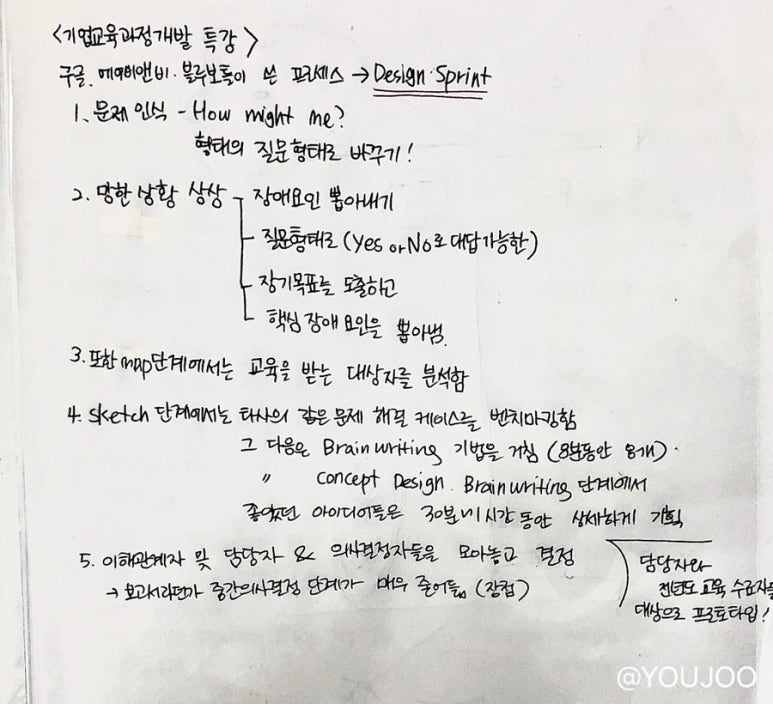 <기업교육과정개발 특강>
구글. 에어비앤비. 블루보틀이 쓴 프로세스 → Design Sprint
1. 문제 인식 - How might me?
형태의 질문형태로 바꾸기!
2. 망한 상황 상상 - 장애요인 뽑아내기
질문형태로 (Yes or No로 대답가능한)
장기목표를 도출하고
핵심 장애 요인을 뽑아냄.
3. 또한 map단계에서는 교육을 받는 대상자를 분석함
4. Sketch 단계에서는 타사의 같은 문제 해결 케이스를 벤치마킹함
그 다음은 Brainwriting 기법을 거침 (8분동안 8개).
〃 Concept Design. Brainwriting 단계에서
좋았던 아이디어들은 30분~1시간 동안 상세하게 기획
5. 이해관계자 및 담당자 & 의사결정자들을 모아놓고 결정
→ 보고서라던가 중간의사결정 단계가 매우 줄어듦. (장점)
담당자와
전년도 교육 수료자를
대상으로 프로토타입!
@YOUJOO